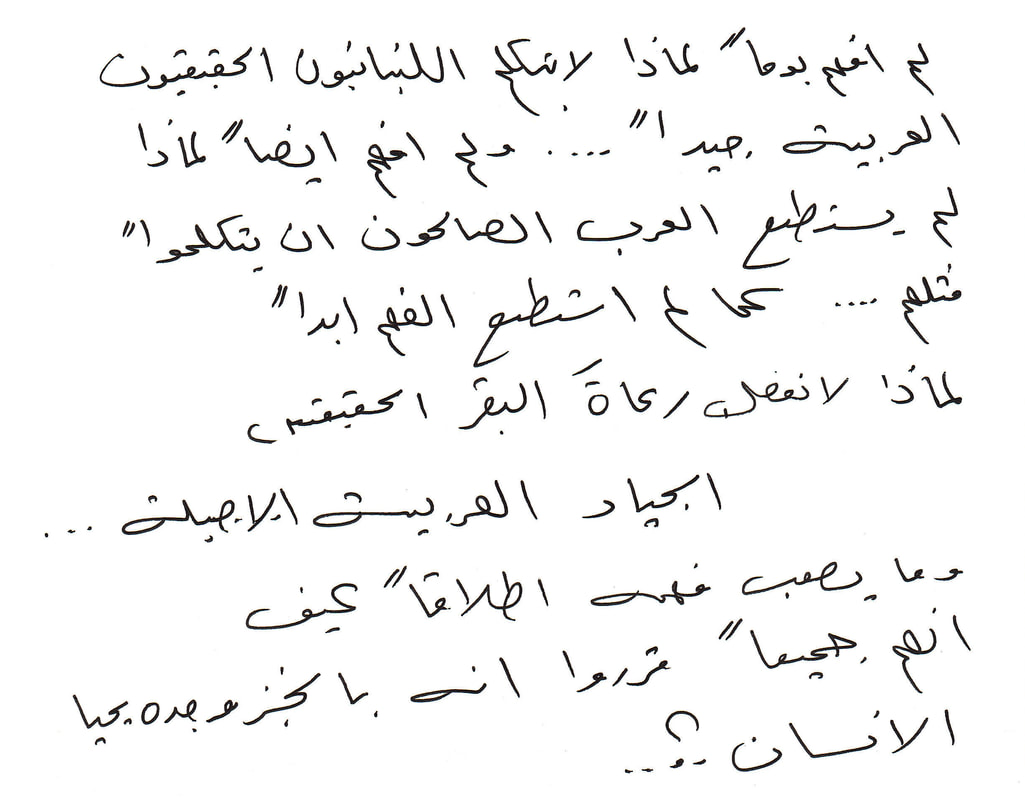 لم افهم يوماً لماذا لا يتكلم اللبنانيون الحقيقيون
العربية جيداً .... ولم افهم ايضاً لماذا
لم يستطع العرب الصالحون ان يتكلموا"
مثلهم .... كما لم استطع الفهم ابداً
لماذا لا نفضل رعاةَ البقر الحقيقين
الجياد العربية الاصيلة ...
وما يصعب فهمه اطلاقاً كيف
انهم جميعاً قرروا انه بالخبز وحده يحيا
الانسان ؟...